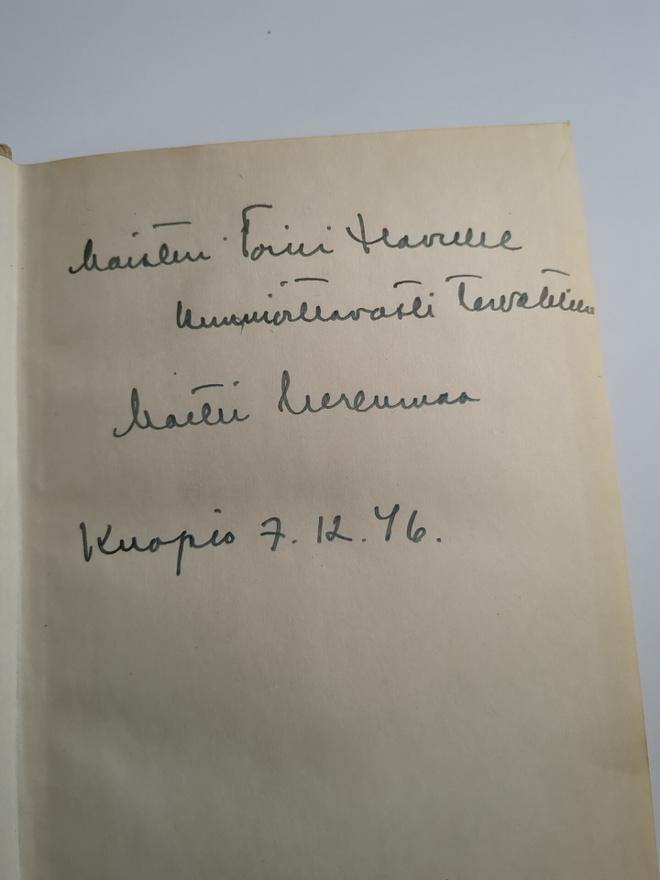 Maisteri Toini Havulle
kunnioittavasti tervehtien
Martti Merenmaa
Kuopio 7.12.46.